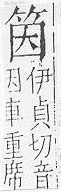 筃
伊貞切音
因車重席